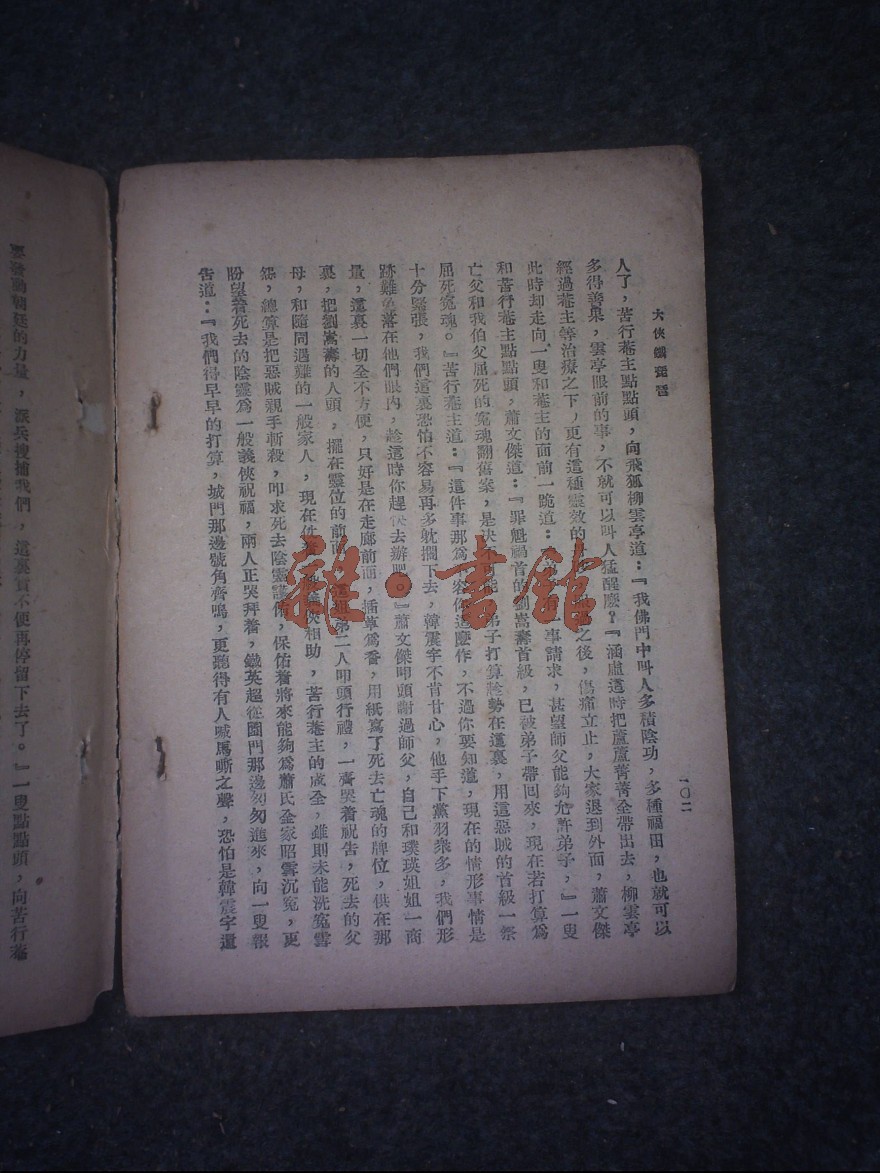 大俠鐵琵琶
一〇二
人了，苦行菴主點點頭，向飛狐柳雲亭道：『我佛門中叫人多積陰功，多種福田，也就可以
多得善果，雲亭眼前的事，不就可以叫人猛醒麽？』涵虛這時把蘆蘆菁菁全帶出去，柳雲亭
經過菴主等治療之下，更有這種靈效的 之後，傷痛立止，大家退到外面，蕭文傑
此時却走向一叟和菴主的面前一跪道： 事請求，甚望師父能夠允許弟子，』一叟
和苦行菴主點點頭，蕭文傑道：『罪魁禍首的劉嵩壽首級，已被弟子帶回來，現在若打算爲
亡父和我伯父屈死的冤魂翻舊案，是决不可能，弟子打算趁勢在這裏，用這惡賊的首級一祭
屈死冤魂。』苦行菴主道：『這件事那爲 容你這麽作，不過你要知道，現在的情形事情是
十分緊張，我們這裏恐怕不容易再多躭擱下去，韓震宇不肯甘心，他手下黨羽衆多，我們形
跡難免落在他們眼內，趁這時你趕 去辦吧。』蕭文傑叩頭謝過師父，自己和璞瑛姐姐一商
量，這裏一切全不方便，只好是在走廊前面，插草爲香，用紙寫了死去亡魂的牌位，供在那
裏，把劉嵩壽的人頭，擺在靈位的前面，這姐弟二人叩頭行禮，一齊哭着祝告，死去的父
母，和隨同遇難的一般家人，現在仗着 義俠相助，苦行菴主的成全，雖則未能洗冤雪
怨，總算是把惡賊親手斬殺，叩求死去陰靈護佑，保佑着將來能夠爲蕭氏全家昭雪沉冤，更
盼望着死去的陰靈爲一般義俠祝福，兩人正哭拜着，鐵英超從圈門那邊匆匆進來，向一叟報
告道：『我們得早早的打算，城門那邊號角齊鳴，更聽得有人喊馬嘶之聲，恐怕是韓震宇還
要發動朝廷的力量，派兵搜捕我們，這裏實不便再停留下去了。』一叟點點頭，向苦行菴
雜·書館